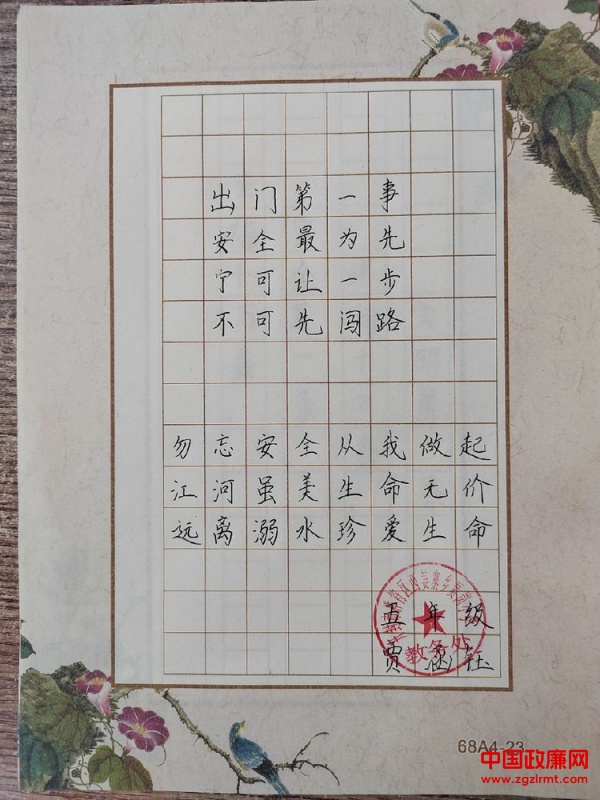 出门第一事
安全最为先
宁可让一步
不可先闯路
勿忘安全从我做起
江河虽美生命无价
远离溺水珍爱生命
五年级
贾钰
教务处
68A4-23
中国政廉网
www.zgzlrmt.com